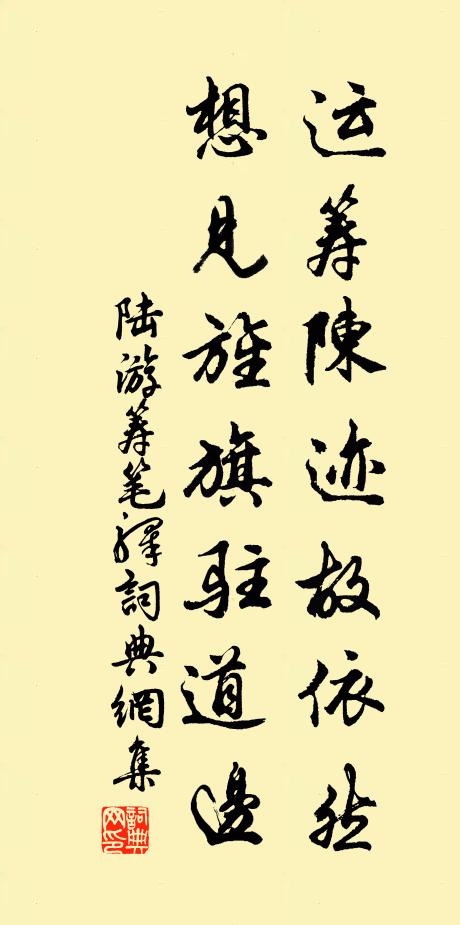 运筹陳迹故依然
想見旌旗駐道邊
陆游筹笔驿詞典網集
詞典网印